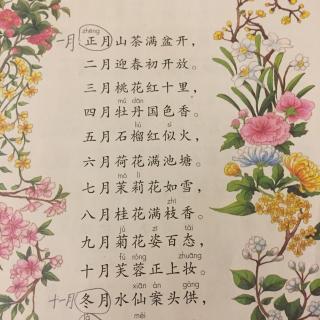 zhēng
一月 正月山茶满盆开，
二月迎春初开放。
三月桃花红十里，
mǔ dān
四月牡丹国色香。
liú sì
五月石榴红似火，
六月荷花满池塘。
mò lì
七月茉莉花如雪，
zhī
八月桂花满枝香。
jú zī tài
九月菊花姿百态，
fú róng zhuāng
十月芙蓉正上妆。
xiān àn gòng
十一月 冬月水仙案头供，
là méi